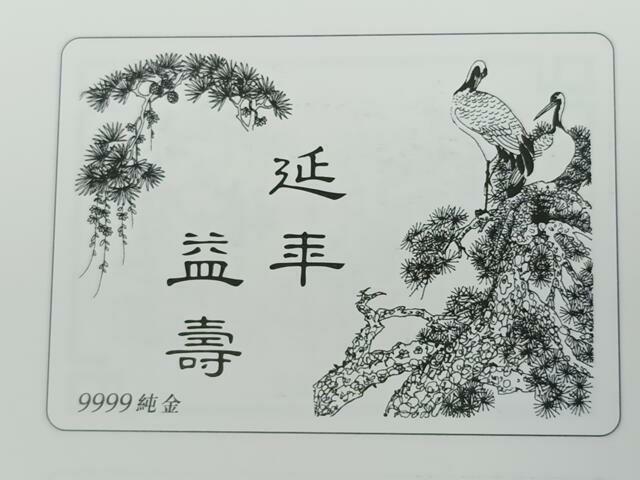 延年
益壽
9999純金